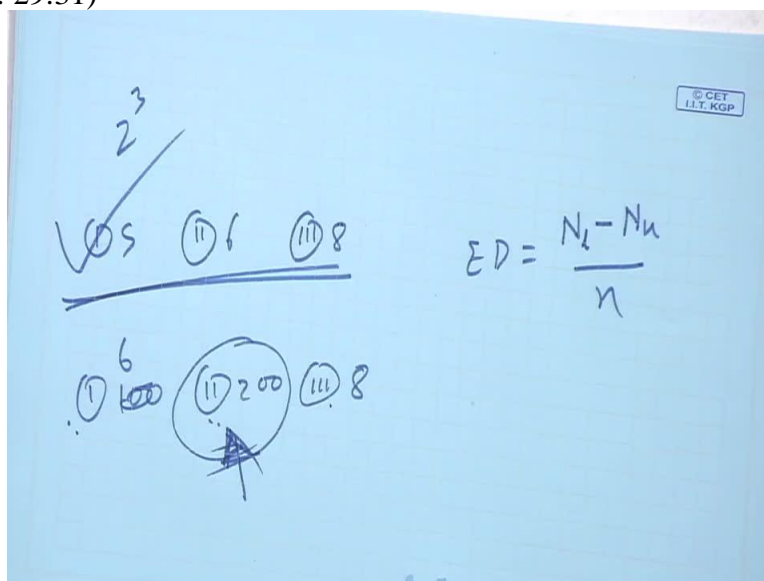 29:31)
© CET
I.I.T. KGP
2^3
Ⓘ 5 Ⓘⓘ 6 Ⓘⓘⓘ 8
ED = (N_L - N_u) / n
6
Ⓘ Ⓘⓘ 200 Ⓘⓘⓘ 8